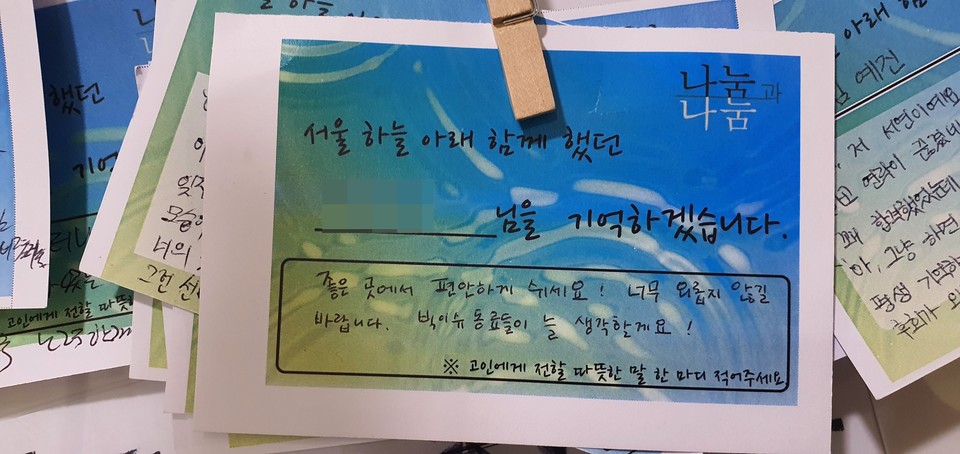 나눔과
나눔
서울 하늘 아래 함께 했던
님을 기억하겠습니다.
좋은 곳에서 편안하게 쉬세요! 너무 외롭지 않길
바랍니다. 빅이슈 동료들이 늘 생각할게요!
※ 고인에게 전할 따뜻한 말 한 마디 적어주세요
했던
기억
너의
고인에게 전할 따뜻
아래 함
예진
저 서연이예요
연락이 끊겼
합격했었는데
아, 그냥 하면
평생 기억하